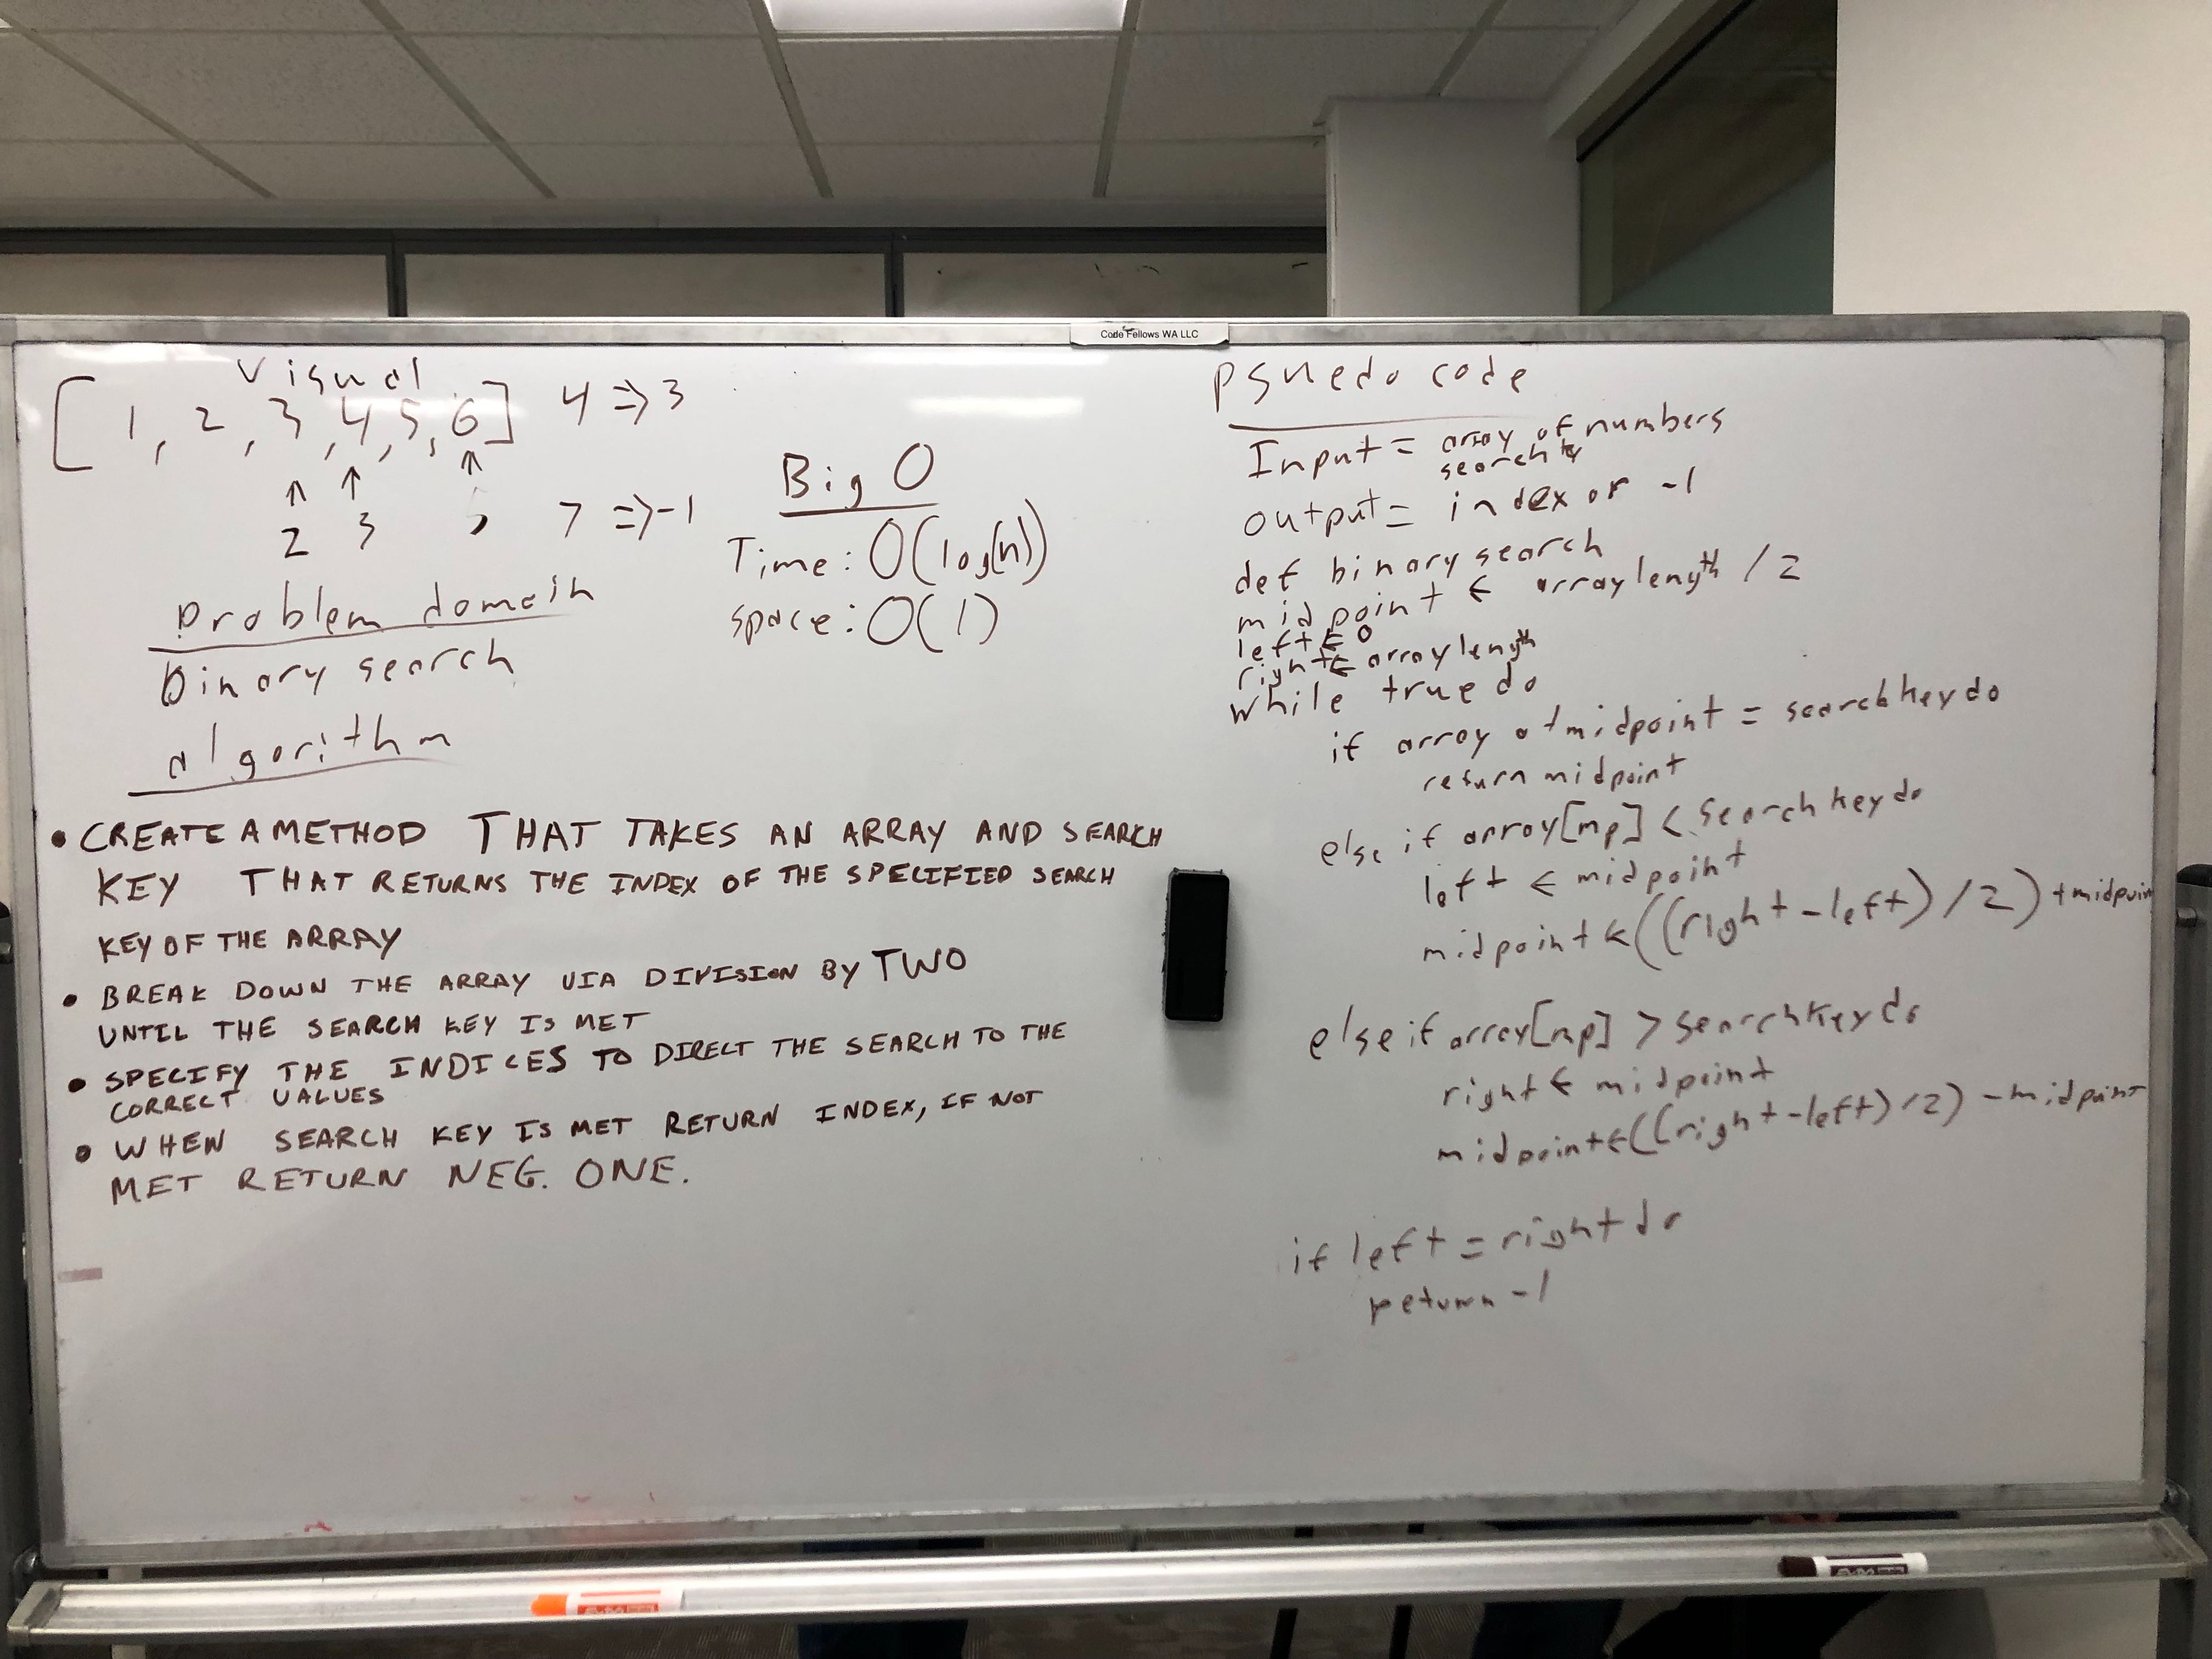 Code Fellows WA LLC
Visual
[1, 2, 3, 4, 5, 6] 4 => 3
↑ ↑ ↑
2 3 5 7 => -1
Big O
Time: O(log(n))
space: O(1)
Problem domain
Binary search
algorithm
• CREATE A METHOD THAT TAKES AN ARRAY AND SEARCH
KEY THAT RETURNS THE INDEX OF THE SPECIFIED SEARCH
KEY OF THE ARRAY
• BREAK DOWN THE ARRAY VIA DIVISION BY TWO
UNTIL THE SEARCH KEY IS MET
• SPECIFY THE INDICES TO DIRECT THE SEARCH TO THE
CORRECT VALUES
• WHEN SEARCH KEY IS MET RETURN INDEX, IF NOT
MET RETURN NEG. ONE.
psuedo code
Input = array of numbers
search
output = index or -1
def binary search
midpoint ← array length / 2
left ← 0
right ← array length
while true do
if array at midpoint = searchkey do
return midpoint
else if array[mp] < searchkey do
left ← midpoint
midpoint ← ((right - left) / 2) + midpoint
else if array[mp] > searchkey do
right ← midpoint
midpoint ← ((right - left) / 2) - midpoint
if left = right do
return -1